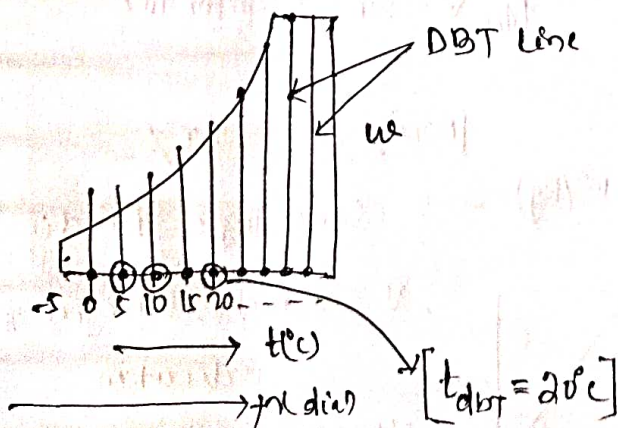 DBT Line
w
-5 0 5 10 15 20 - - - -
t(°c)
[t_dbT = 20°c]